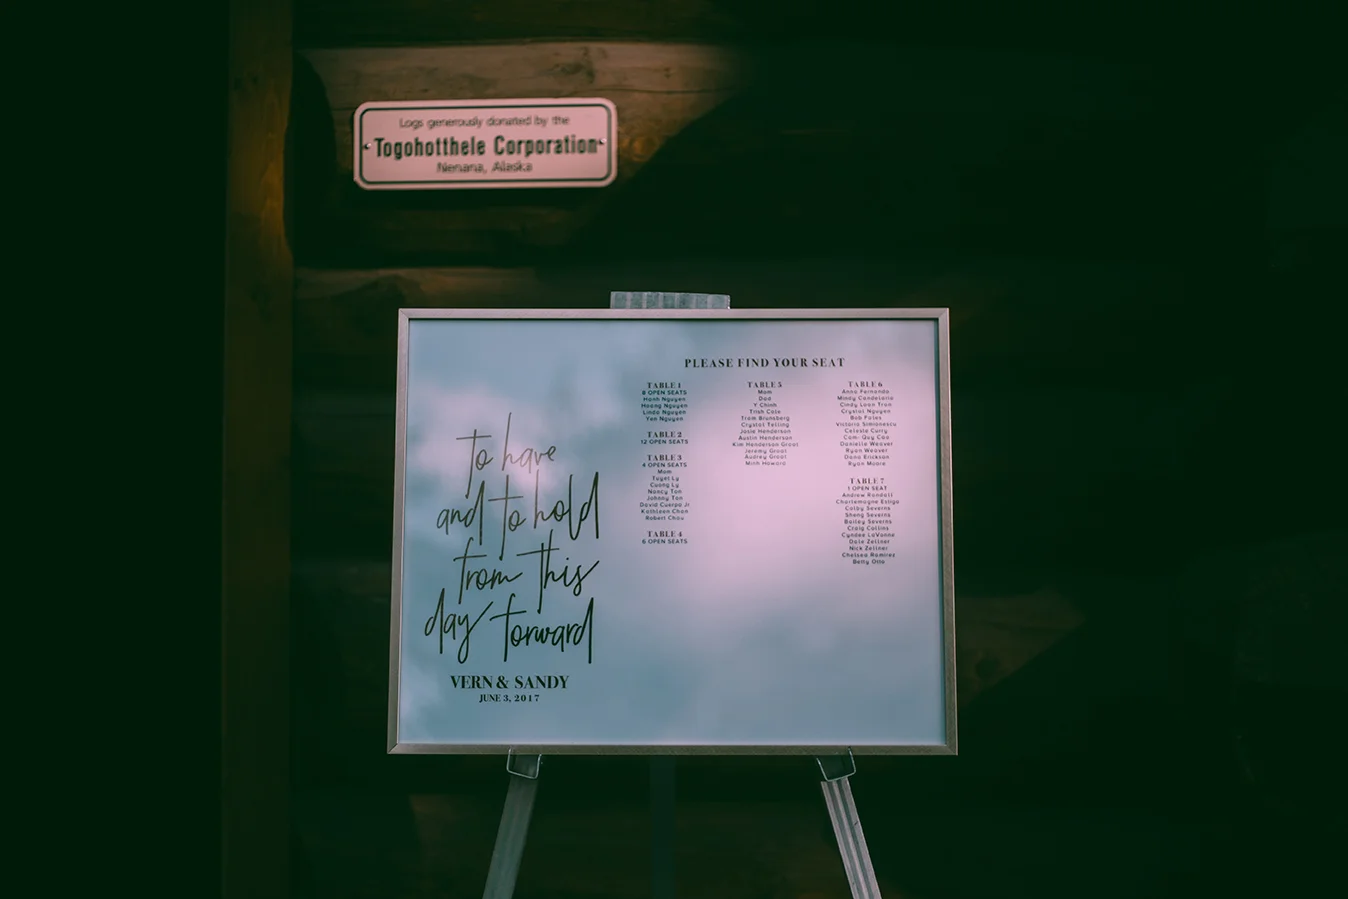 Logs generously donated by the
Togohotthele Corporation
Nenana, Alaska
to have
and to hold
from this
day forward
VERN & SANDY
JUNE 3, 2017
PLEASE FIND YOUR SEAT
TABLE 1
8 OPEN SEATS
Hanh Nguyen
Hoang Nguyen
Linda Nguyen
Yen Nguyen
TABLE 2
12 OPEN SEATS
TABLE 3
4 OPEN SEATS
Mom
Tuyet Ly
Cuong Ly
Nancy Tan
Johnny Tan
David Cuerpo Jr
Kathleen Chan
Robert Chau
TABLE 4
6 OPEN SEATS
TABLE 5
Mom
Dad
Y Chinh
Trish Cate
Tram Brunsberg
Crystal Telling
Josie Henderson
Austin Henderson
Kim Henderson Groat
Jeremy Groat
Audrey Groat
Minh Howard
TABLE 6
Anna Fernando
Mindy Candelaria
Cindy Loan Tran
Crystal Nguyen
Bob Potes
Victoria Simionescu
Celeste Curry
Cam-Quy Cao
Danielle Weaver
Ryan Weaver
Dana Erickson
Ryan Moore
TABLE 7
1 OPEN SEAT
Andrew Randall
Charlemayne Estigo
Colby Severns
Sheng Severns
Bailey Severns
Craig Collins
Cyndee LaVonne
Dale Zellner
Nick Zellner
Chelsea Ramirez
Betty Otto